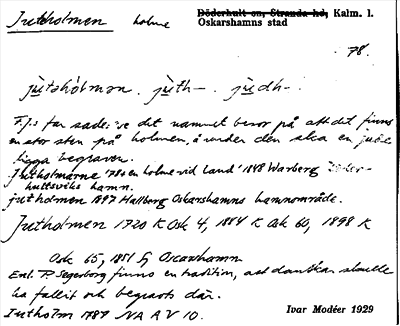 Jutholmen holme Döderhult sn, Stranda hd, Kalm. l.
Oskarshamns stad
78.
jùtshòlmən. jùth-. jùdh-.
F.j:s far sade: "se det namnet beror på att det finns
en stor sten på holmen, å under den ska en jude
ligga begraven.
Jutholmarne 1784 en holme vid land 1848 Warberg
hultsviks hamn.
jutholmen 1897 Hallborg Oskarshamns hamnområde.
Jutholmen 1920 K Osk 4, 1884 K Osk 60, 1898 K
Osk 65, 1881 G Oscarshamn
Enl. P. Segerborg finns en tradition, att danskar skulle
ha fallit och begravts där.
Jutholm 1787 NA A V 10.
Ivar Modéer 1929